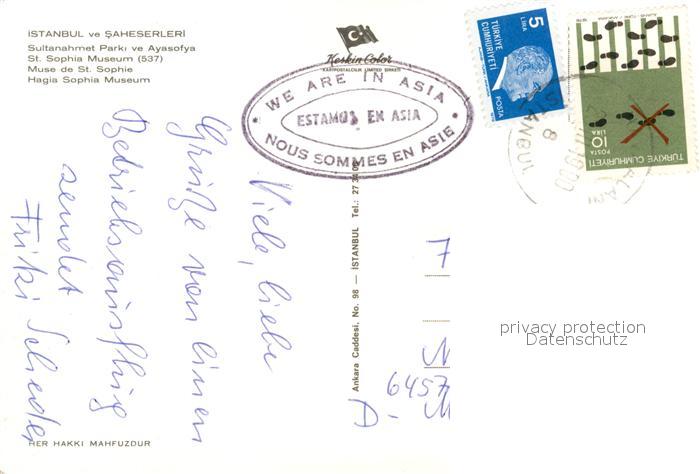 İSTANBUL ve ŞAHESERLERİ
Sultanahmet Parkı ve Ayasofya
St. Sophia Museum (537)
Muse de St. Sophie
Hagia Sophia Museum
Keskin Color
KARTPOSTALCILIK LIMITED ŞİRKETİ
WE ARE IN ASIA
ESTAMOS EN ASIA
NOUS SOMMES EN ASIE
5
LİRA
TÜRKİYE
CUMHURİYETİ
POSTA
10
LİRA
POSTA
TÜRKİYE CUMHURİYETİ
İSTANBUL
Viele, liebe
Grüße von einem
Betriebsausflug
sendet
Fritzi
Ankara Caddesi, No. 98 — İSTANBUL Tel.:
F
N
6457
A-
privacy protection
Datenschutz
HER HAKKI MAHFUZDUR